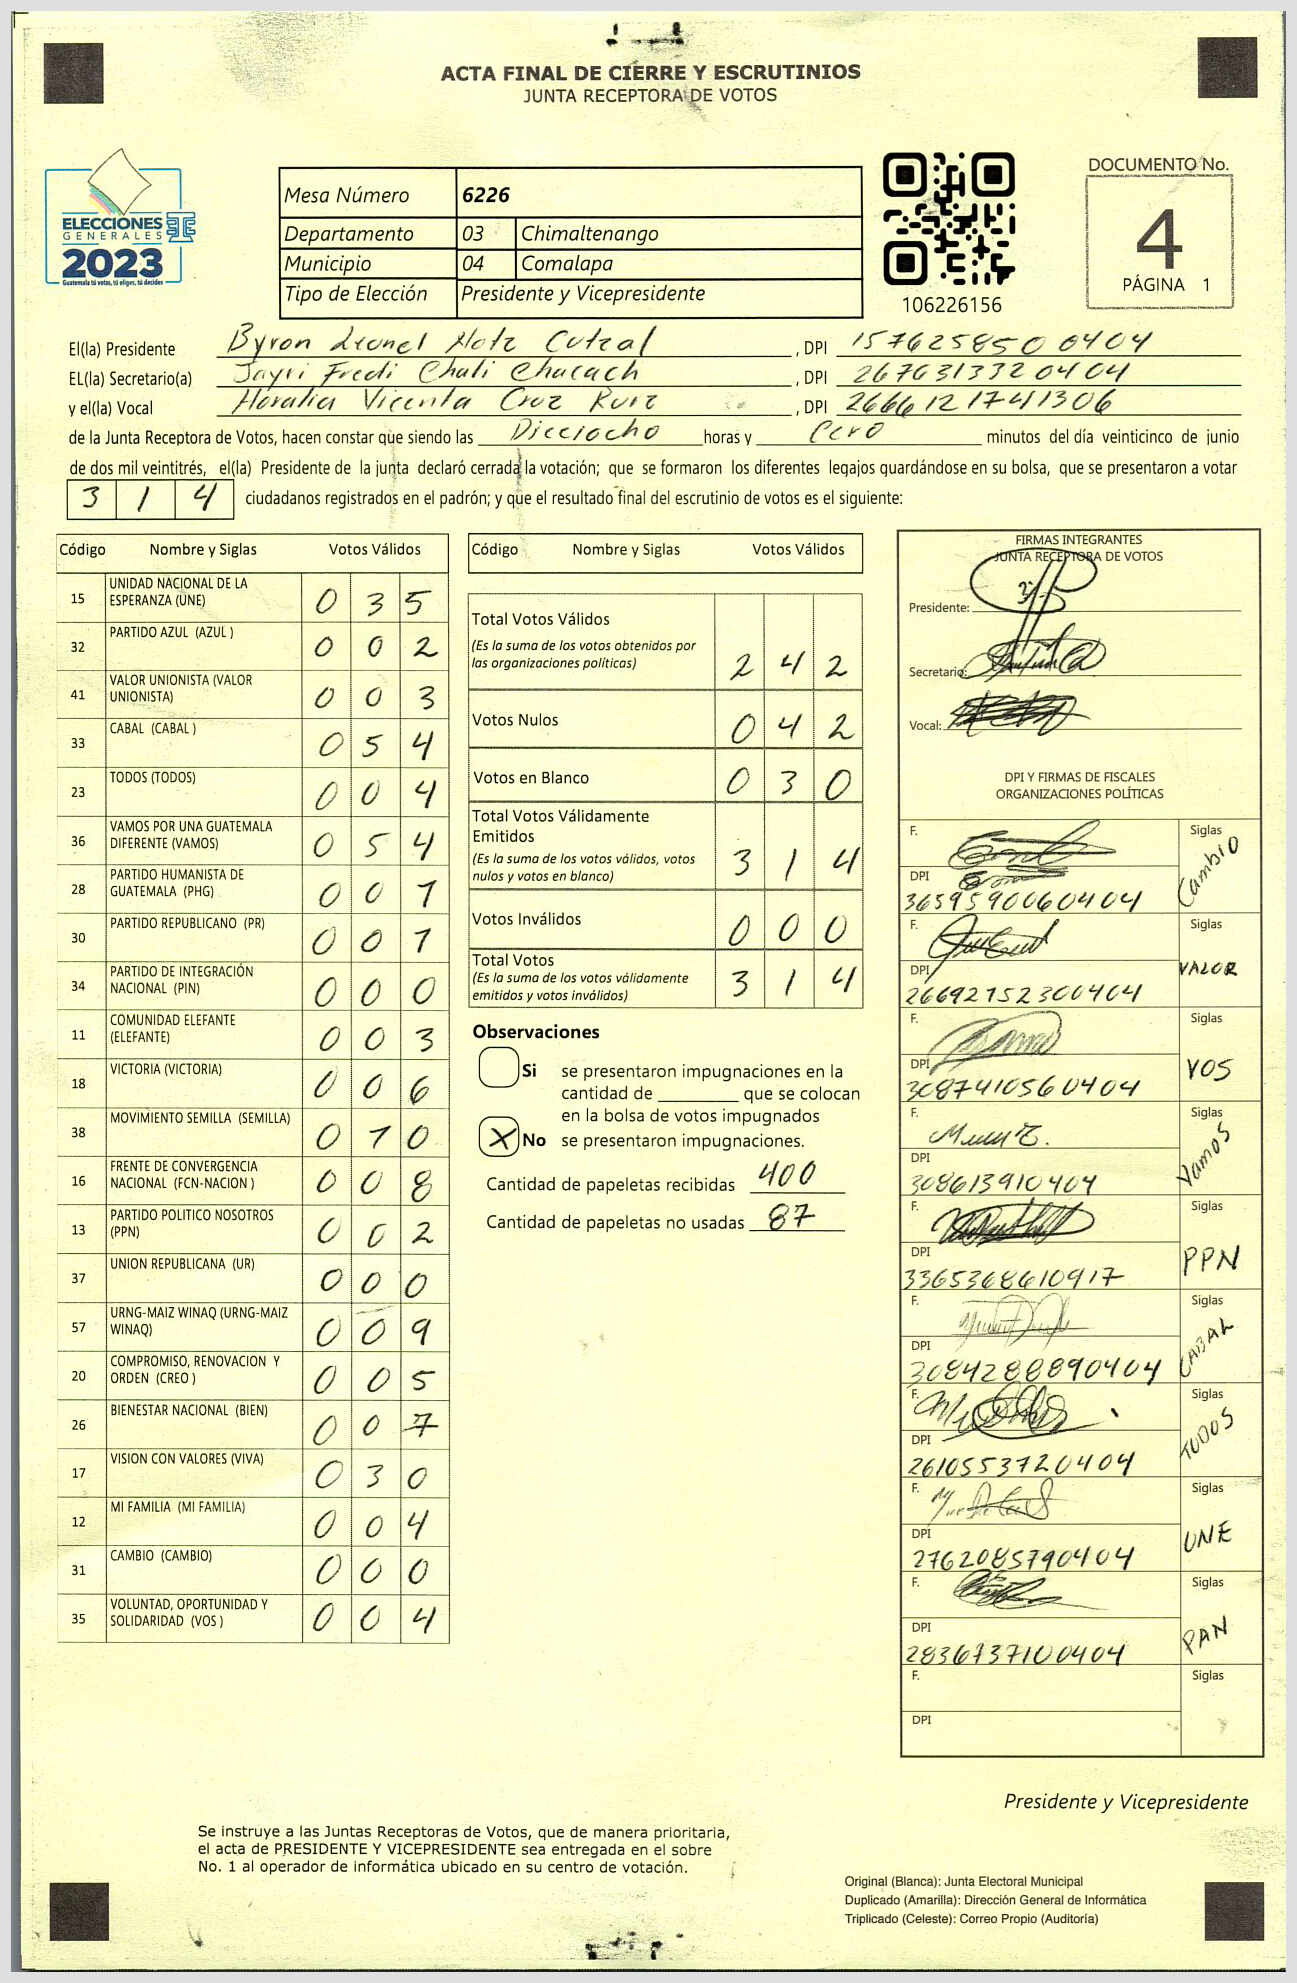 ACTA FINAL DE CIERRE Y ESCRUTINIOS
JUNTA RECEPTORA DE VOTOS
ELECCIONES
GENERALES
2023
Guatemala tú votas, tú eliges, tú decides
Mesa Número 6226
Departamento 03 Chimaltenango
Municipio 04 Comalapa
Tipo de Elección Presidente y Vicepresidente
106226156
DOCUMENTO No.
4
PÁGINA 1
El(la) Presidente Byron Leonel Cutzal , DPI 1576258500404
EL(la) Secretario(a) Fredi Chali Chacach , DPI 2676313320404
y el(la) Vocal Vicenta Cruz Ruiz , DPI 2666121741306
de la Junta Receptora de Votos, hacen constar que siendo las Dieciocho horas y Cero minutos del día veinticinco de junio
de dos mil veintitrés, el(la) Presidente de la junta declaró cerrada la votación; que se formaron los diferentes legajos guardándose en su bolsa, que se presentaron a votar
3 1 4 ciudadanos registrados en el padrón; y que el resultado final del escrutinio de votos es el siguiente:
Código Nombre y Siglas Votos Válidos
15 UNIDAD NACIONAL DE LA ESPERANZA (UNE) 0 3 5
32 PARTIDO AZUL (AZUL ) 0 0 2
41 VALOR UNIONISTA (VALOR UNIONISTA) 0 0 3
33 CABAL (CABAL ) 0 5 4
23 TODOS (TODOS) 0 0 4
36 VAMOS POR UNA GUATEMALA DIFERENTE (VAMOS) 0 5 4
28 PARTIDO HUMANISTA DE GUATEMALA (PHG) 0 0 1
30 PARTIDO REPUBLICANO (PR) 0 0 1
34 PARTIDO DE INTEGRACIÓN NACIONAL (PIN) 0 0 0
11 COMUNIDAD ELEFANTE (ELEFANTE) 0 0 3
18 VICTORIA (VICTORIA) 0 0 6
38 MOVIMIENTO SEMILLA (SEMILLA) 0 1 0
16 FRENTE DE CONVERGENCIA NACIONAL (FCN-NACION ) 0 0 8
13 PARTIDO POLITICO NOSOTROS (PPN) 0 0 2
37 UNION REPUBLICANA (UR) 0 0 0
57 URNG-MAIZ WINAQ (URNG-MAIZ WINAQ) 0 0 9
20 COMPROMISO, RENOVACION Y ORDEN (CREO ) 0 0 5
26 BIENESTAR NACIONAL (BIEN) 0 0 7
17 VISION CON VALORES (VIVA) 0 3 0
12 MI FAMILIA (MI FAMILIA) 0 0 4
31 CAMBIO (CAMBIO) 0 0 0
35 VOLUNTAD, OPORTUNIDAD Y SOLIDARIDAD (VOS ) 0 0 4
Código Nombre y Siglas Votos Válidos
Total Votos Válidos
(Es la suma de los votos obtenidos por
las organizaciones políticas) 2 4 2
Votos Nulos 0 4 2
Votos en Blanco 0 3 0
Total Votos Válidamente
Emitidos
(Es la suma de los votos válidos, votos
nulos y votos en blanco) 3 1 4
Votos Inválidos 0 0 0
Total Votos
(Es la suma de los votos válidamente
emitidos y votos inválidos) 3 1 4
Observaciones
Si se presentaron impugnaciones en la
cantidad de ________ que se colocan
en la bolsa de votos impugnados
X No se presentaron impugnaciones.
Cantidad de papeletas recibidas 400
Cantidad de papeletas no usadas 87
FIRMAS INTEGRANTES
JUNTA RECEPTORA DE VOTOS
Presidente:
Secretario:
Vocal:
DPI Y FIRMAS DE FISCALES
ORGANIZACIONES POLÍTICAS
F. Siglas Cambio
DPI 3659590060404
F. Siglas VALOR
DPI 26692152300404
F. Siglas VOS
DPI 3087410560404
F. Siglas Vamos
DPI 308613910404
F. Siglas PPN
DPI 3365368610917
F. Siglas CABAL
DPI 3084288890404
F. Siglas TODOS
DPI 2610553720404
F. Siglas UNE
DPI 2762085790404
F. Siglas PAN
DPI 2836737100404
F. Siglas
DPI
Presidente y Vicepresidente
Se instruye a las Juntas Receptoras de Votos, que de manera prioritaria,
el acta de PRESIDENTE Y VICEPRESIDENTE sea entregada en el sobre
No. 1 al operador de informática ubicado en su centro de votación.
Original (Blanca): Junta Electoral Municipal
Duplicado (Amarilla): Dirección General de Informática
Triplicado (Celeste): Correo Propio (Auditoría)